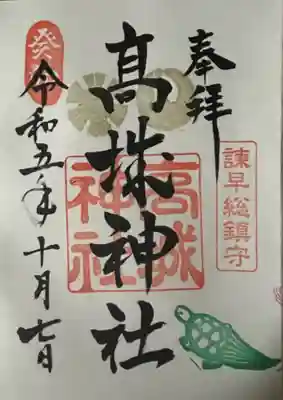 奉拝
諫早総鎮守
髙城神社
高城
神社
令和五年十月七日